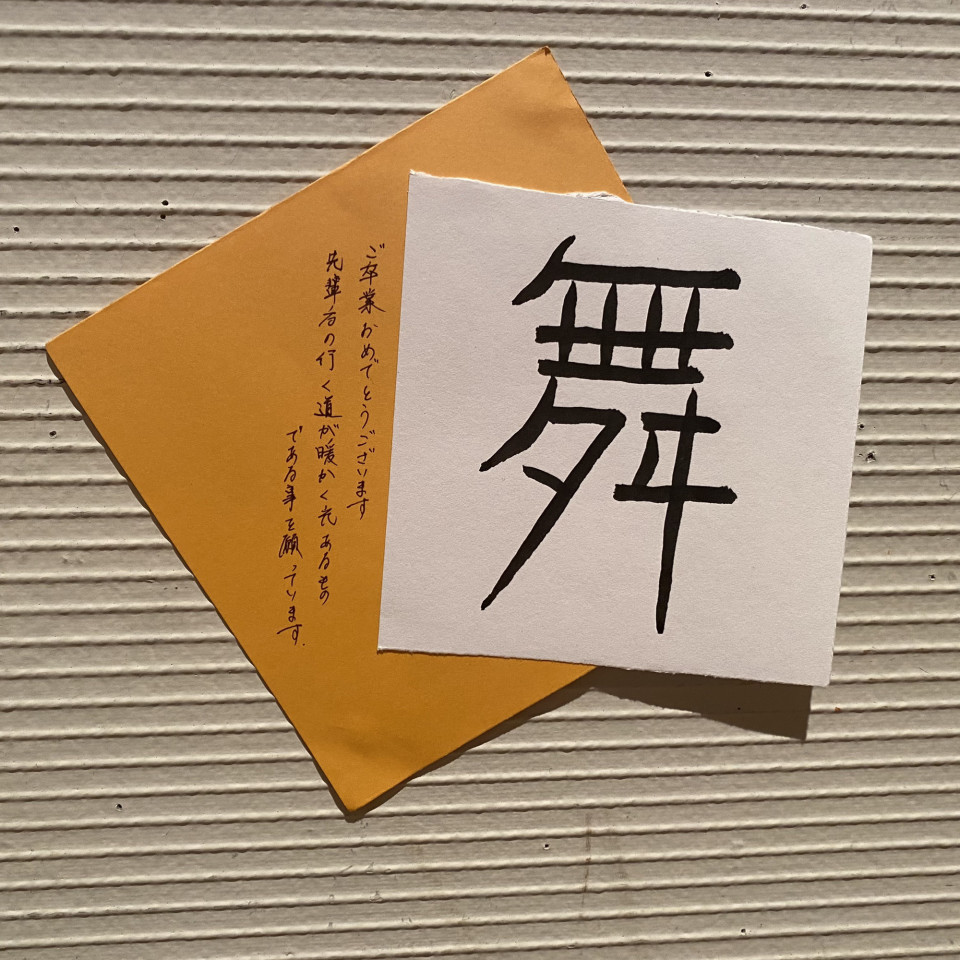 舞
ご卒業おめでとうございます
先輩方の行く道が暖かく光あるもの
である事を願っています.